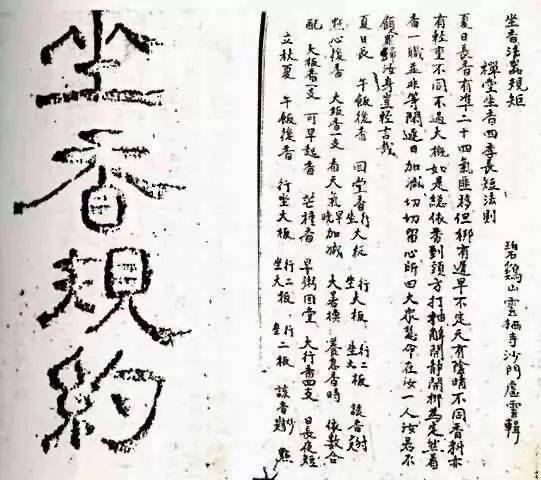 坐香法器規矩
碧鷄山雲栖寺沙門虛雲輯
禪堂坐香四季長短法則
夏日長香有準二十四氣匪移但鄉有遲早不定天有陰晴不同香料亦
有輕重不同不過大概如是總依香到頭方打抽解開靜開梆為定然看
香一職並非等閒逐日加減切切留心所四大眾慧命在汝一人汝若不
顧罪歸汝身豈輕言哉
夏日長 午飯後香 回堂香行坐大板 行大板坐 行二板坐大 該香
點心後香 大板香一支 看天氣早晚加減 大香換 養息香時 依數合
配 大板香一支 可早起香 芒種香 早粥回堂 大行香四支 日長夜短
立秋夏 午飯後香 行坐大板 行二板坐大 行坐二板 該香 點
坐香規約